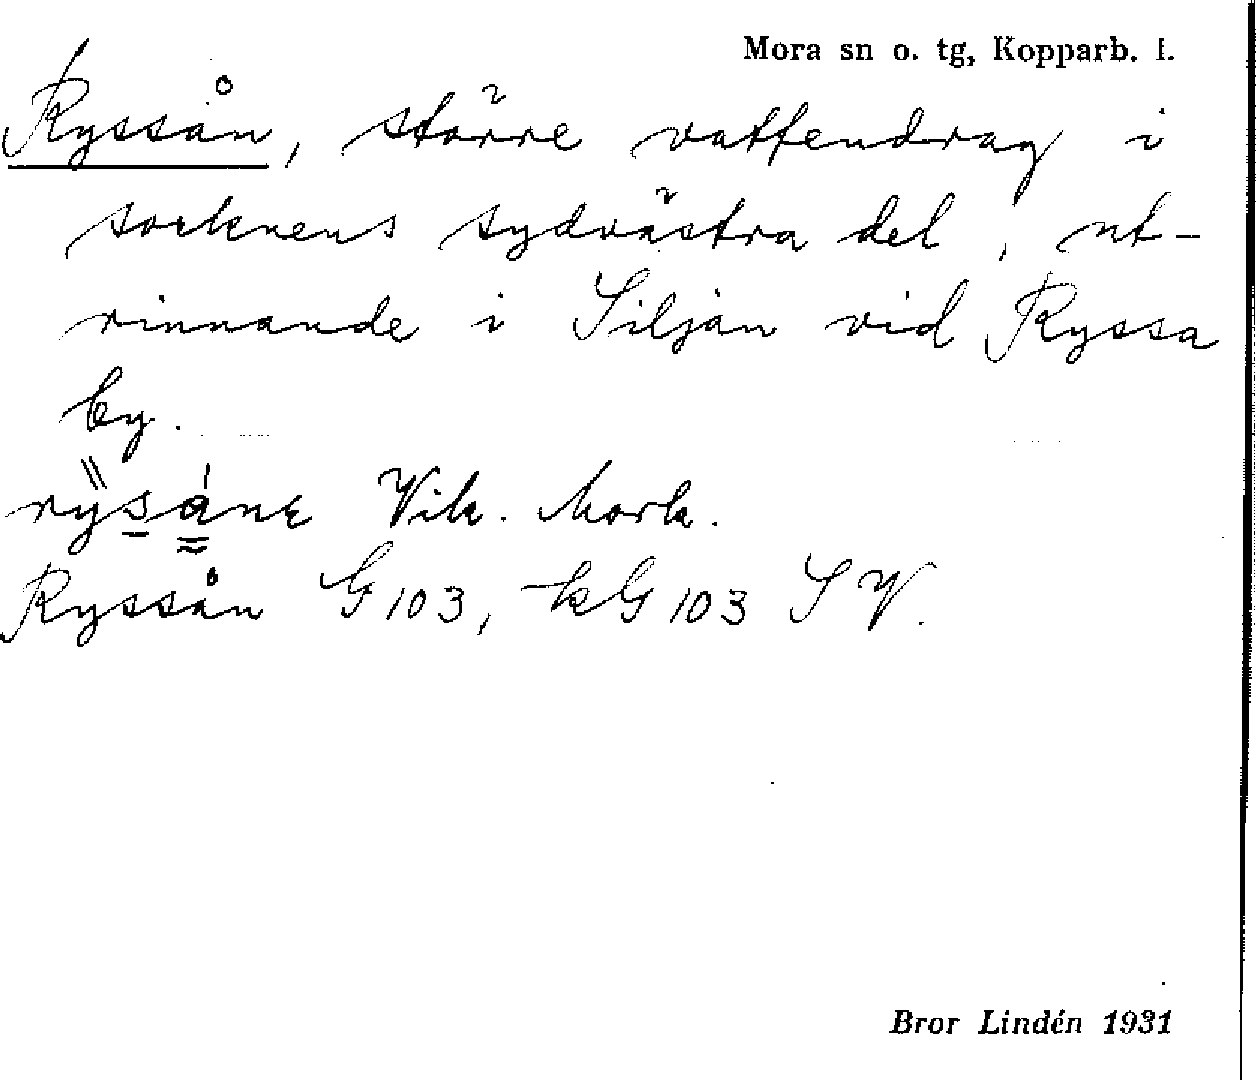 Mora sn o. tg, Kopparb. l.
Ryssån, större vattendrag i
socknens sydvästra del, ut-
rinnande i Siljan vid Ryssa
by.
Vik. Mork.
Ryssån G 103, kG 103 SV.
Bror Lindén 1931